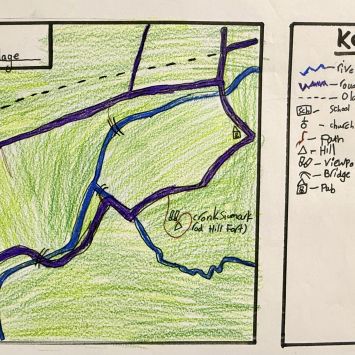 lage
Ke
- rive
- roa
- Old
Sch - School
- church
- Path
- Hill
- Viewpo
- Bridge
- Pub
cronk Sumark
(old Hill Fort)